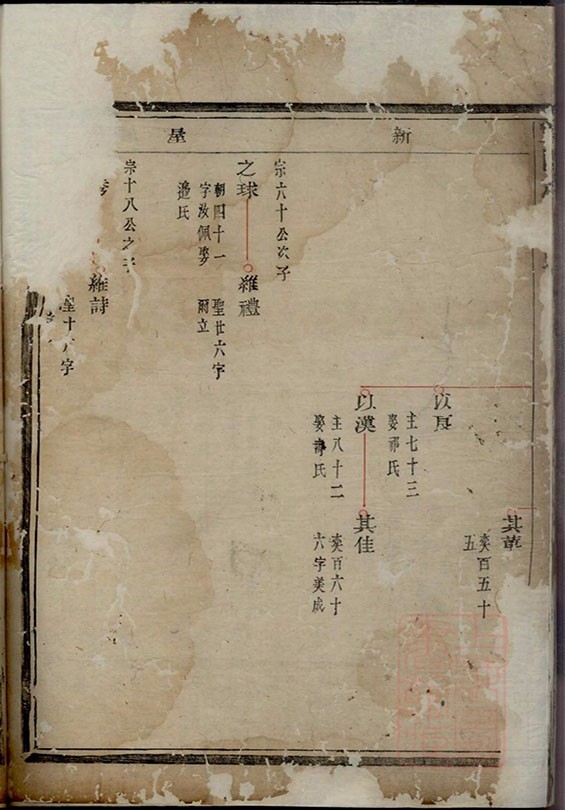 新屋
其華
奕百五十
五
以良
主七十三
娶祁氏
以漢
主八十二
娶壽氏
其佳
奕百六十
六字美成
宗六十公次子
之球
朝四十一
字汝佩娶
邉氏
維禮
聖廿六字
爾立
宗十八公之子
維詩
聖十八字